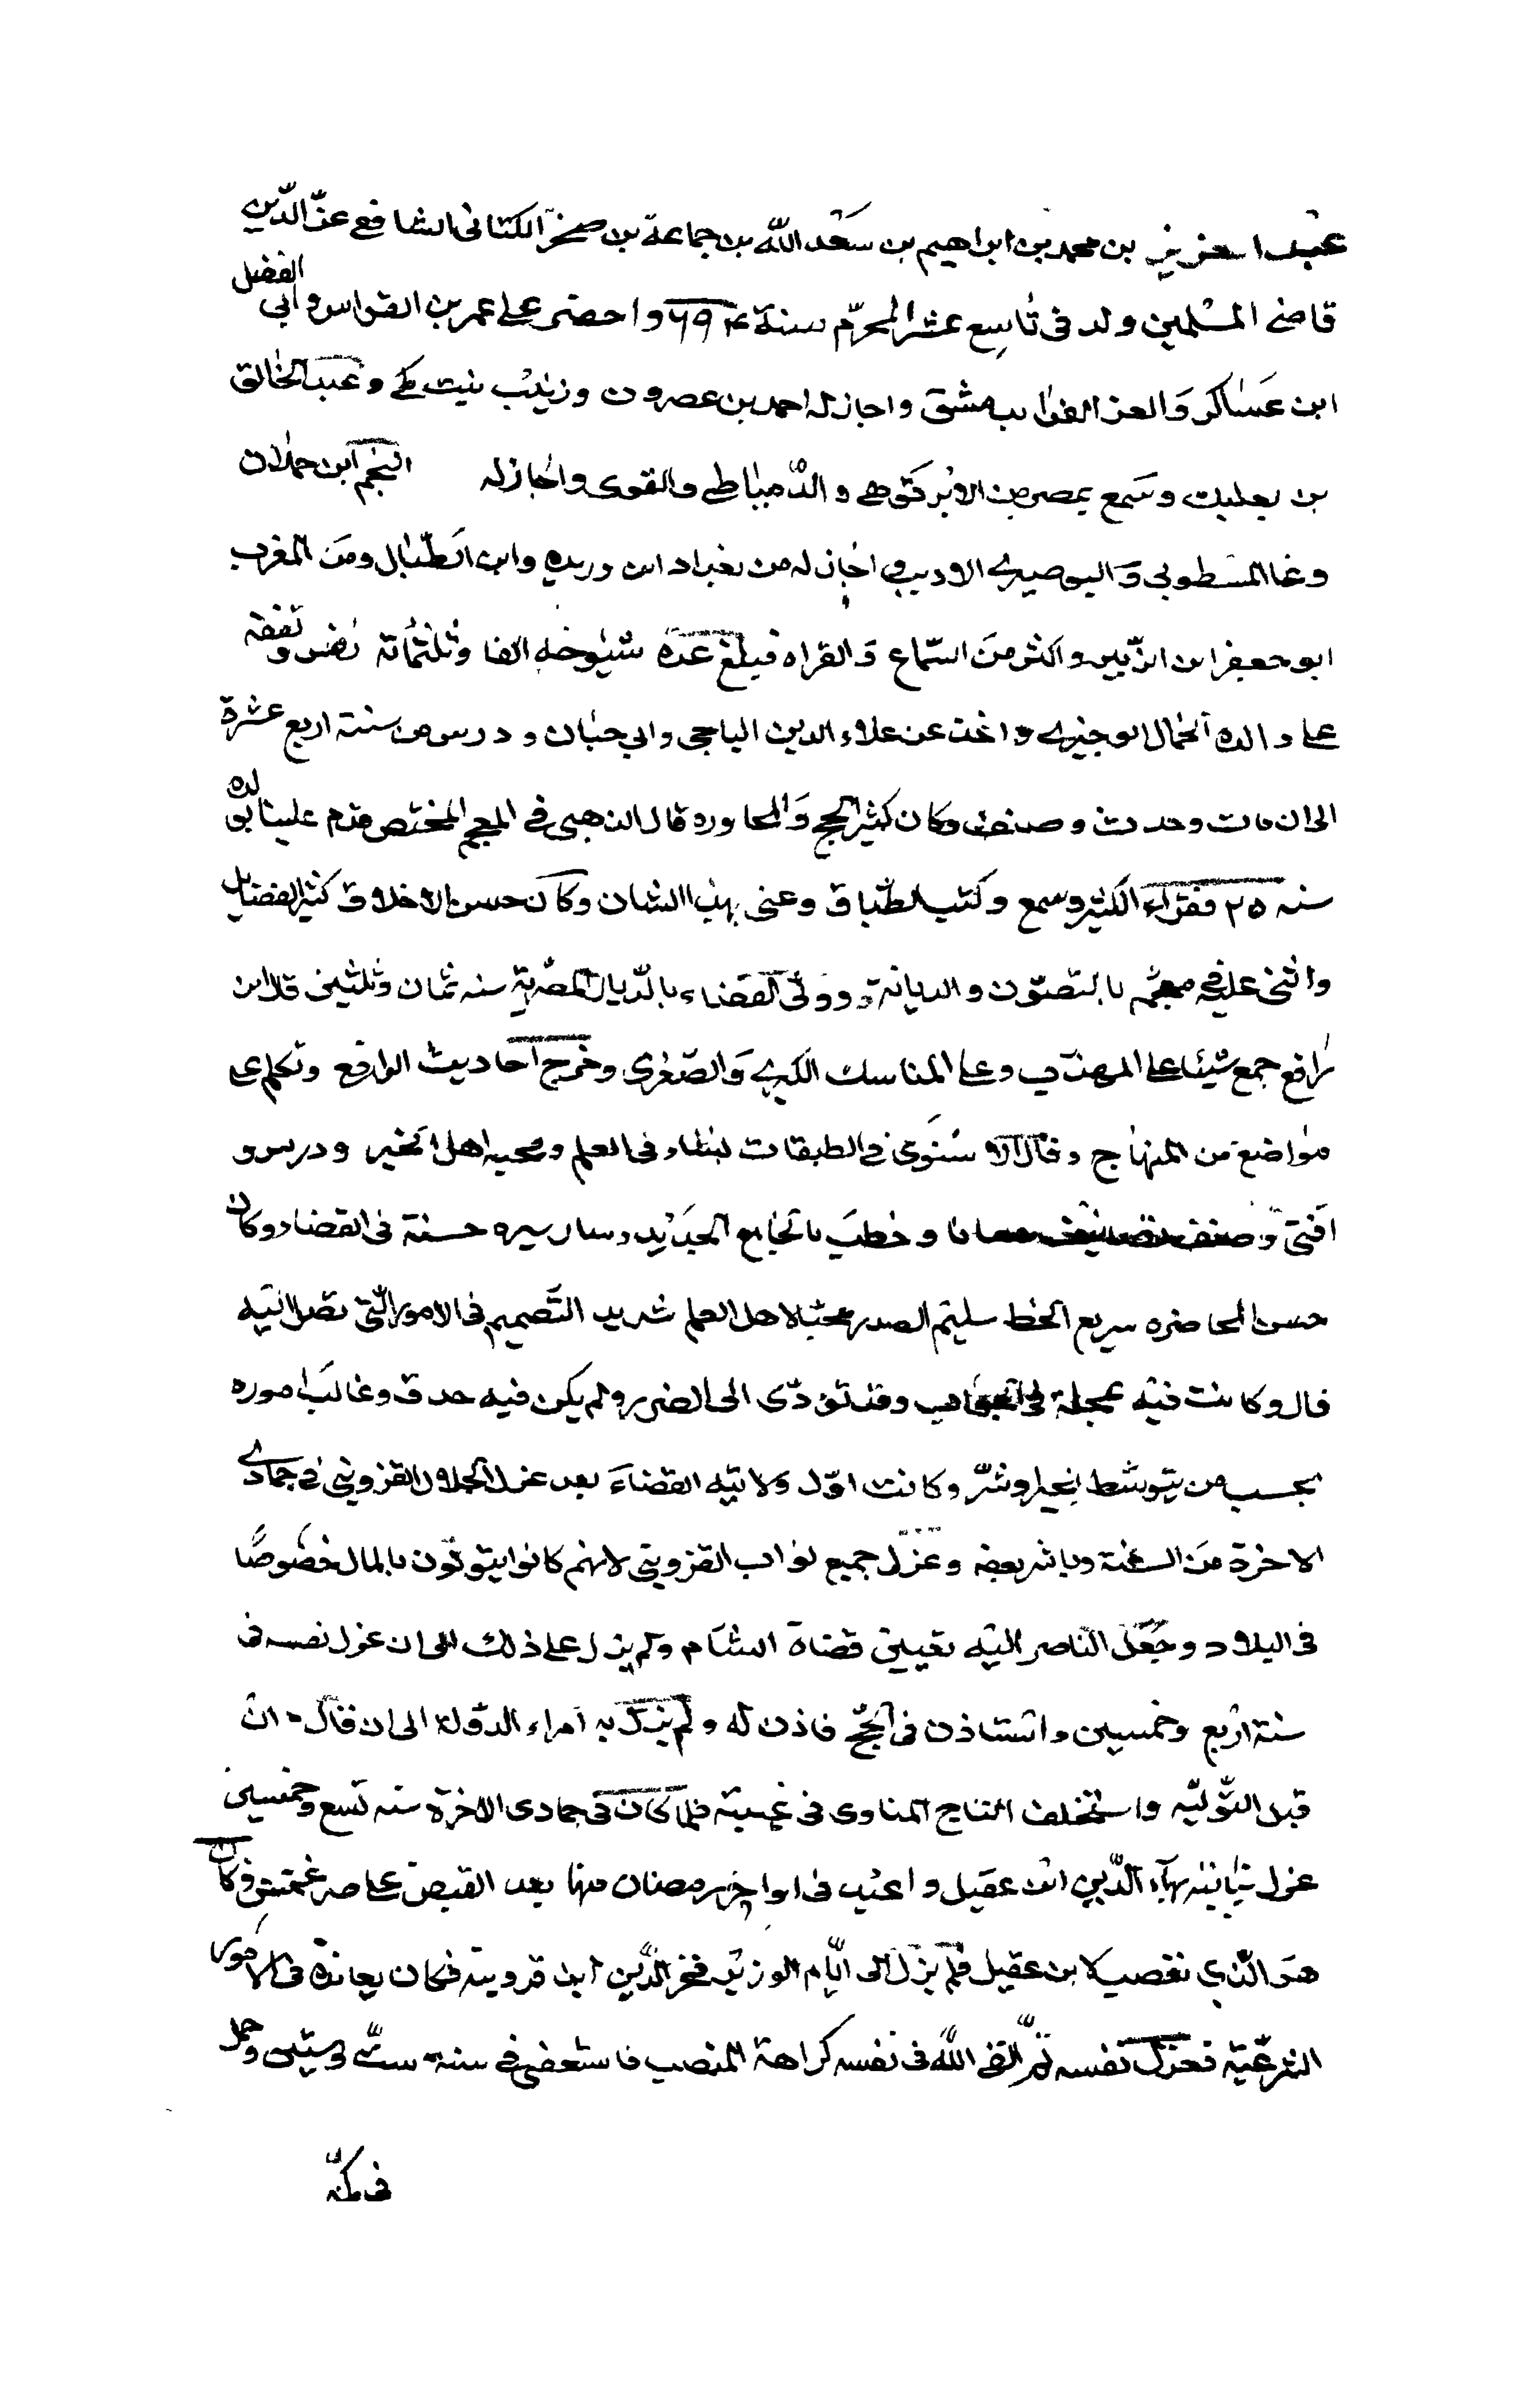 عبد العزيز بن محمد بن ابراهيم بن سَعْد الله بن جماعة بن صخر الكنانى الشافعي عزّ الدّين
قاضى المسْلمين ولد فى تاسِع عشر المحرّم سنة ٦٩٤ واحضر على عمر بن القواس وابى الفضل
ابن عَسَاكر وَالعز الفرا بدمشق واجاز له احمد بن عصرون وزينب بنت مكي وعبد الخالق
بن بعلبك وسَمع بمصر من الابرقوهي والدّمياطي والقوى واجاز له النجم ابن حملان
وغا المسطوبى وَالبوصيري الاديب واجاز له من بغداد ابن وريده وابن الطّبال ومن المغرب
ابو جعفر ابن الزّبير واكثر من السّماع وَالقراه فبلغ عدة شيوخه الفا وثلثمائة نفس وتفقه
على والده الجمال الوجيزي واخذ عن علاء الدين الباجى وابي حيان ودرس من سنة اربع عشرة
الى ان مات وحدث وصنف وكان كثير الحج وَالمجاوره قال الذهبى في المعجم المختص قدم علينا بولده
سنه ٢٥ فقراء الكثير وسمع وكتب الطّباق وعنى بهذا الشان وكان حسن الاخلاق كثير الفضايل
واثنى عليه في معجمه بالتصوّن والديانة وولّى القضاء بالدّيار المصْريّة سنه ثمان وثلثين قال ابن
رافع جمع شيئا على المهذب وعلى المناسك الكبرى وَالصّغرى وخرج احاديث الرافع وتكلم على
مواضع من المنهاج وقال الاسنوي في الطبقات نشاء فى العلم ومحبه اهل الخير ودرس و
افتى وصنف تصانيف حسانا وخطب بالجامع الجديد وسار سيره حسنة فى القضاء وكان
حسن المحاضره سريع الخط سليم الصدر محبا لاهل العلم شديد التّصميم فى الامور التّى تصل اليه
قال وكانت فيه عجلة فى الجواب وقد تؤدّى الى الضرر ولم يكن فيه حدق وغالب اموره
بحسب من يتوسّط بخير او شرّ وكانت اوّل ولايته القضاء بعد عزل الجلال القزوينى فى جمادى
الاخرة من السنة وباشر بعفه وعزل جميع نواب القزوينى لانهم كانوا يتولون بالمال خصوصًا
فى البلاد وجعل النّاصر اليه تعيين قضاة الشام ولم يزل على ذلك الى ان عزل نفسه فى
سنة اربع وخمسين واستاذن فى الحجّ فاذن له ولم يزل به امراء الدّولة الى ان قال ان
قبل التّوليّه واستخلف التاج المناوى فى غيبته فلما كان فى جمادى الاخرة سنه تسع وخمسين
عزل ببهاء الدّين ابن عقيل واعيد فى اواخر رمضان منها بعد القبض على صرغمتش وكان
هو الذي تعصب لابن عقيل فلم يزل الى ايّام الوزير فخر الدّين ابن قروينه فكان يعانده فى الامور
الشرعيّة فعزل نفسه ثمّ القى اللّه فى نفسه كراهة المنصب فاستعفى في سنة ستّ وستين وحمل
فى كمّه